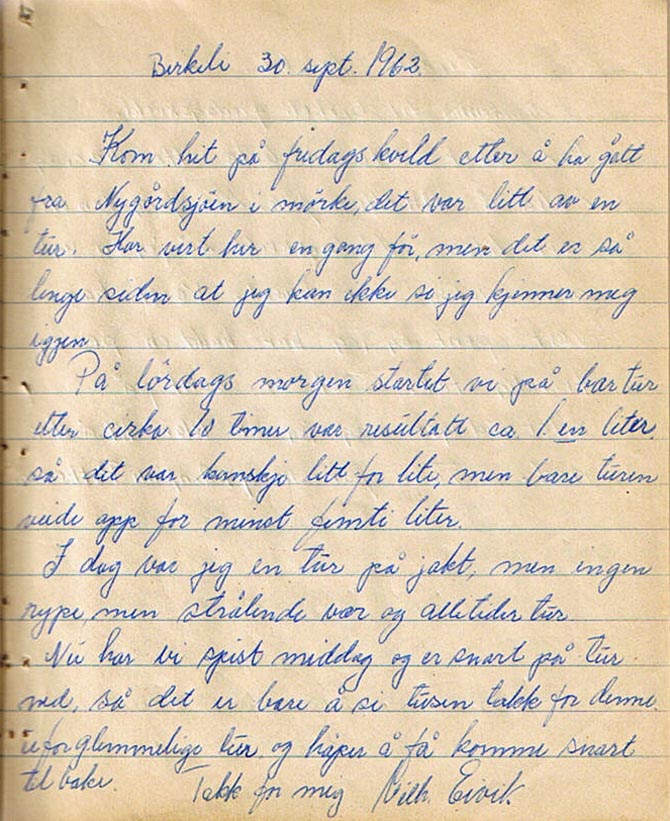 Birkeli 30. sept. 1962.
Kom hit på fridags kveld etter å ha gått
fra Nygårdsjöen i mörke, det var litt av en
tur. Har vert her en gang för, men det er så
lenge siden at jeg kan ikke si jeg kjenner meg
igjen.
På lördags morgen startet vi på bær tur
etter cirka 10 timer var resultatt ca 1 en liter.
så det var kanskje litt for lite, men bare turen
veide opp for minst femti liter.
I dag var jeg en tur på jakt, men ingen
rype, men strålende vær og alletiders tur
Nu har vi spist middag og er snart på tur
ned, så det er bare å si tusen takk for denne
uforglemmelige tur og håper å få komme snart
tilbake. Takk for meg Vilh. Eivik.